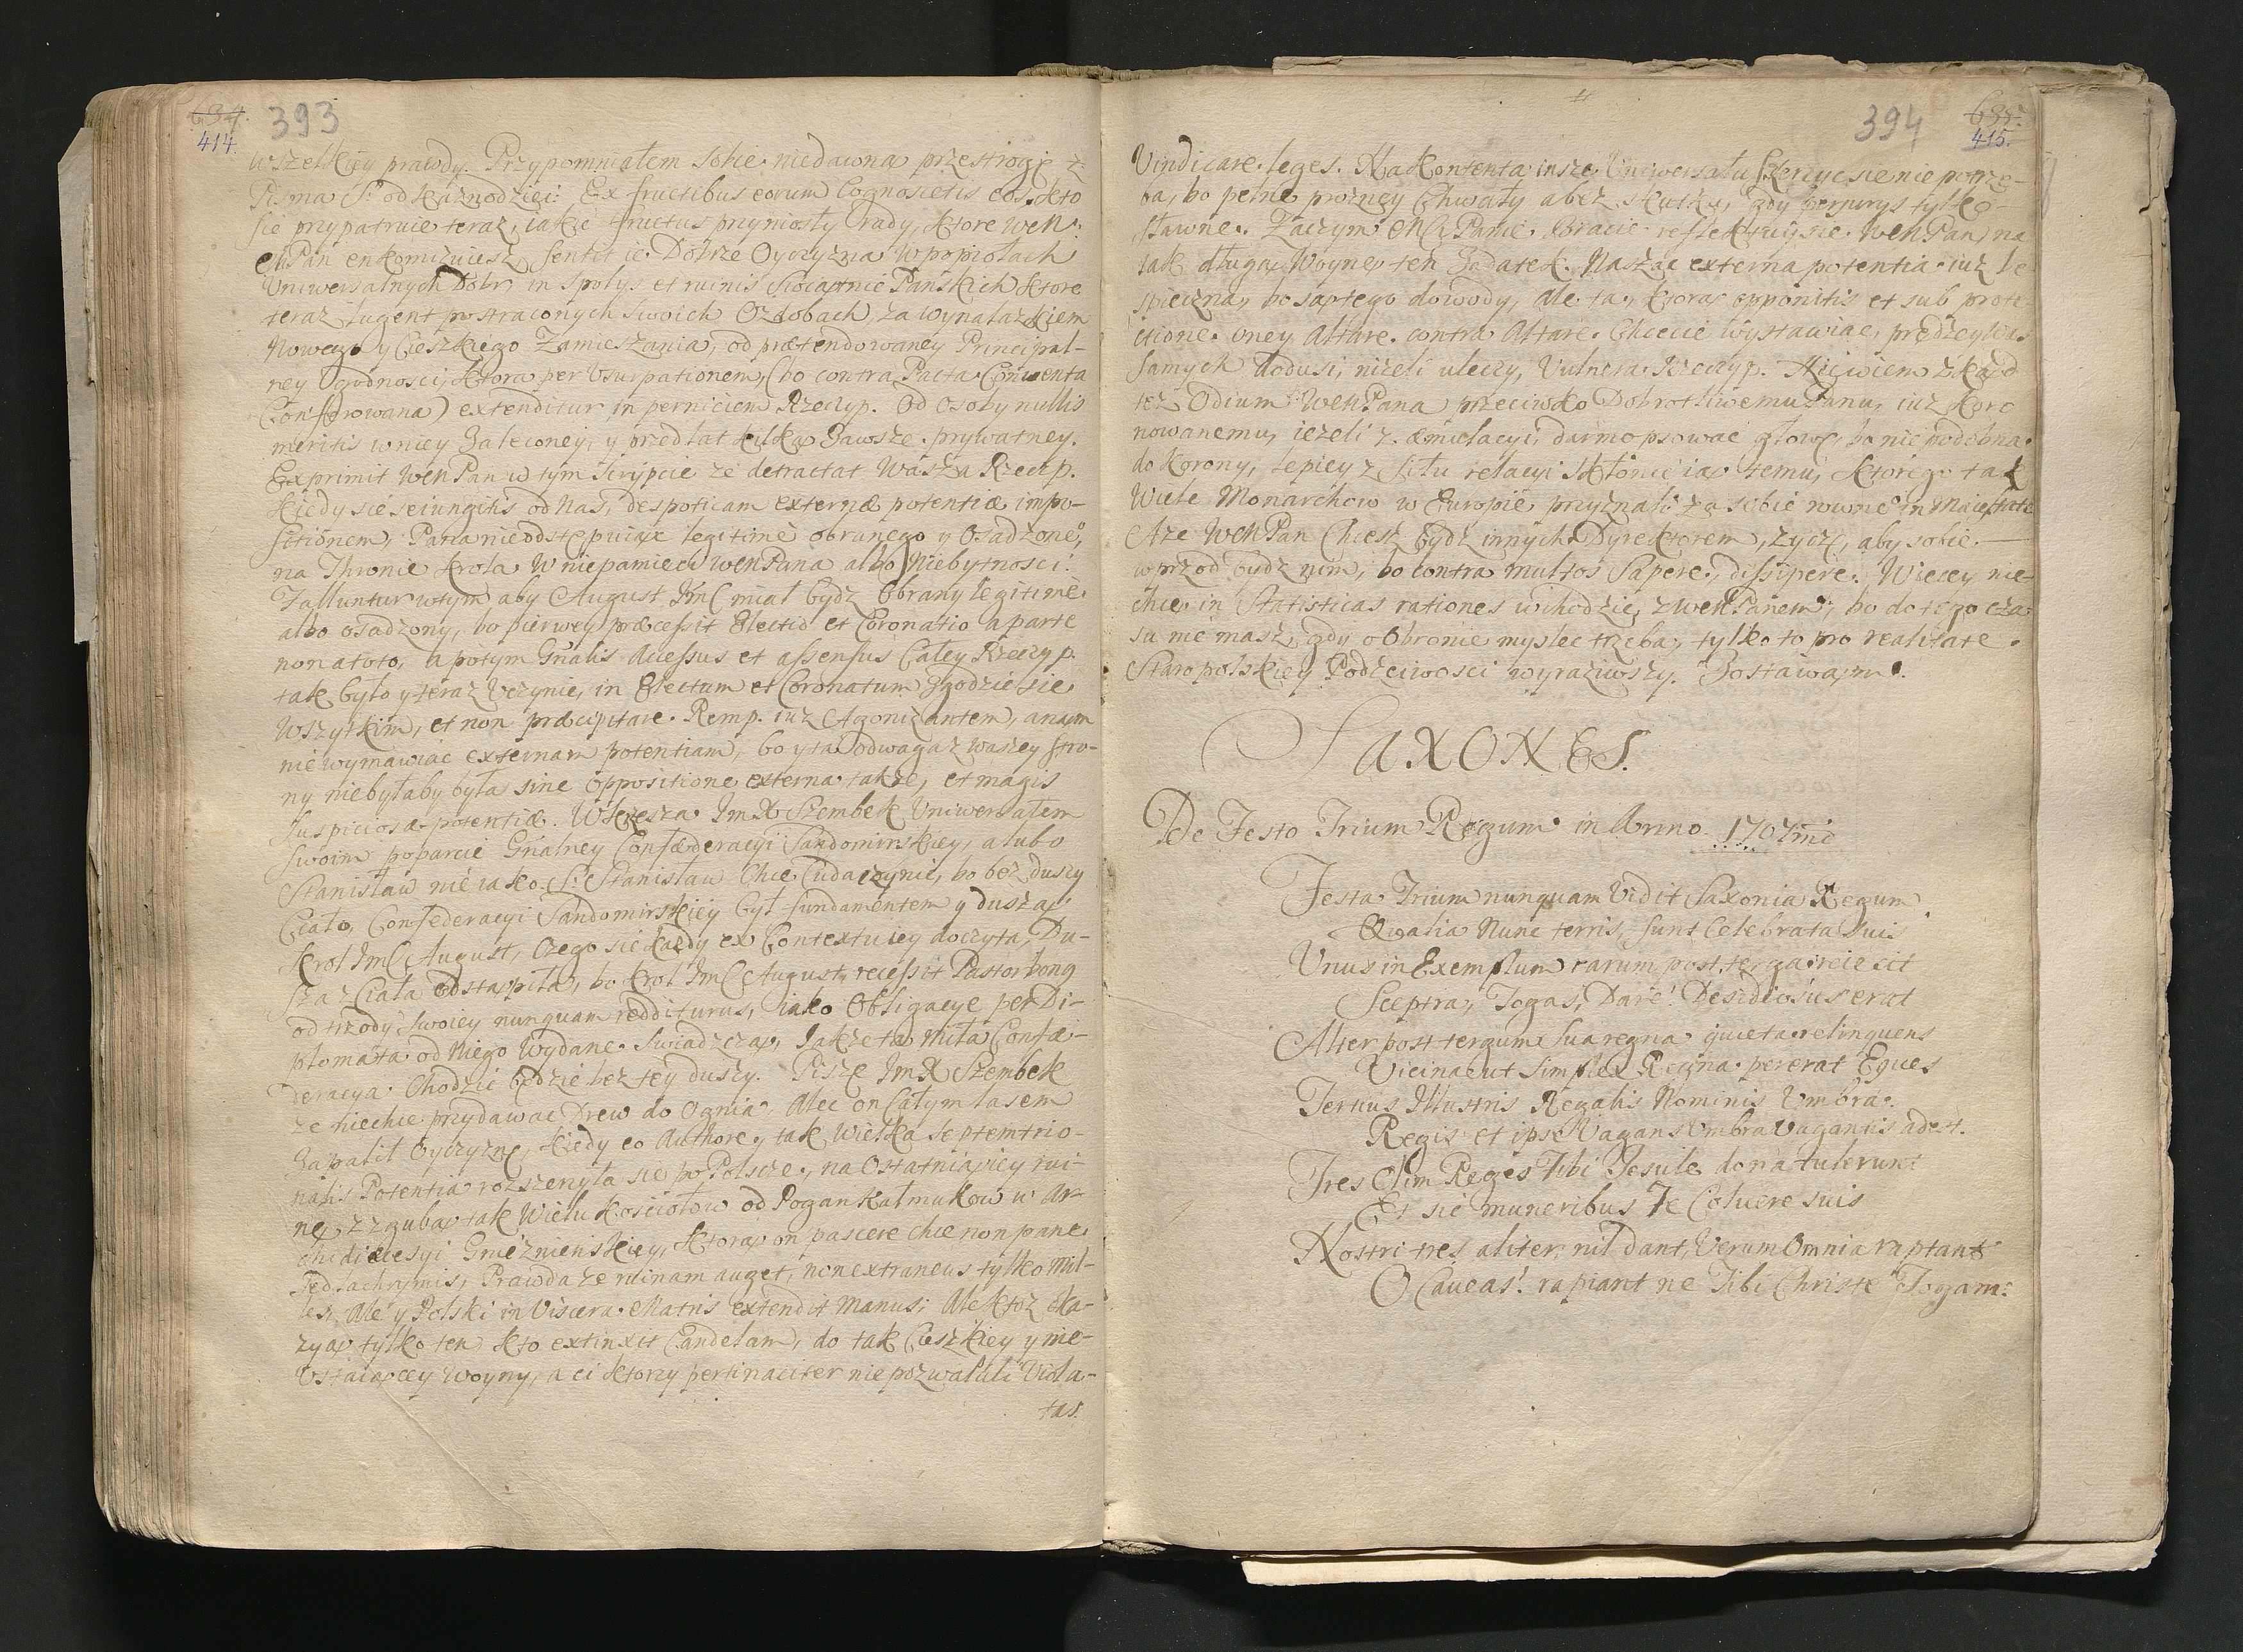 634.
414.
393
wszelkiey prawdy. Przypomniałem sobie niedawna przestrogę z
Pisma S. od Kaznodziei: Ex fructibus eorum Cognoscetis eos. kto
sie przypatruie teraz, iakie fructus przyniosły rady, ktore WćM
Pan enkomizuiesz, sentit ie Dobrze Oyczyzna w popiołach
Uniwersalnych Dobr, in Spolys et ruinis Pańskich ktore
teraz lugent postraconych swoich Ozdobach, za wynalazkiem
Nowego y Cieszkiego Zamieszania, od prætendowaney Principal-
ney Vgodnosci, ktora per Vsurpationem, (bo contra Pacta Conventa
Conferowana) extenditur in perniciem Rzeczyp. Od Osoby nullis
meritis w niey Zaleconey, y przed lat kilką Zawsze prywatney.
Exprimit WćM Pan w tym Scrypcie że detractat Wasza Rzeczp.
kiedy sie seiungitis od Nas, despoticam externæ potentiæ impo-
sitionem, Pana nieodstępuiąc legitimè obranego y Osadzone
na Thronie krola. W niepamięci WćM Pana albo Niebytnosci
Falluntur w tym aby August JmC miał bydz Obrany legitimè
albo osadzony, bo pierwey præcessit Electio et Coronatio a parte
non a toto, a potym Gnalis Accessus et assensus Całey Rzeczyp.
tak było y teraz Vczynic, in Electum et Coronatum zgodzic sie
Wszytkim, et non præcipitare Remp. iuz Agonizantem, a nam
nie wymawiac externam potentiam, bo y ta odwaga z waszey stro-
ny niebyłaby była sine oppositione externa także, et magis
suspiciosæ potentiæ. Wskrzesza JmX Szembek Uniwersałem
swoim poparcie Gnalney Confæderacyi Sandomirskiey, a lubo
Stanisław nie iako S. Stanisław Chce Cuda czynic, bo bez duszy
Ciało, Confederacyi Sandomirskiey był fundamentem y duszą
krol JmC August, czego sie każdy ex Contextu iey doczyta, Du-
sza z Ciała odstąpiła, bo krol JmC August recessit Pastor bong
od trzody swoiey nunquam redditurus, iako Obligacye per Di-
plomata od Niego Wydane Swiadczą, Jakże ta miła Confæ-
deracya Chodzic będzie bez tey duszy. Pisze JmX Szembek
że niechce przydawac Drew do Ognia Alec on Całym lasem
Zapalił Oyczyznę, kiedy eo Authore, tak Wielka Septemtrio-
nalis Potentia rozszerzyła sie w Polszcze, na Ostatnią iey rui-
nę, z zgubą tak Wielu kosciołow od Pogan Kałmukow w Ar-
chidiæcesyi Gnieznienskiey, ktorą on pascere chce non pane
sed lachrymis, Prawda że ruinam auget, non extraneus tylko Mil-
es, Ale y Polski in Viscera Matris extendit manus; Ale ktoz oka-
zyą tylko ten kto extinxit Candelam, do tak Cieszkiey y nie-
Vstaiącey Woyny, a ci ktorzy pertinaciter niepozwalali Viola-
tas.
394
635.
415.
Vindicare leges. Na kontenta insze Uniwersału Szerzyc sie nie potrze-
ba, bo pełne prozney Chwały a bez skutku, gdy perjurys tylko
sławne. Zaczym Mci Panie Bracie reflektuy sie WćM Pan na
iak długą Woynę ten Zadatek. Naszać externa potentia iuz be
spieczna, bo są tego dowody, Ale ta, ktorą opponitis et sub prote
ctione oney Altare contra Altare Chcecie wystawiac, prędzey was
samych dodusi, nizeli uleczy, Vulnera Rzeczyp. Niewiem zkąd
tez Odium WćM Pana przeciwko Dobrotliwemu Panu, iuz koro
nowanemu, iezeli z æmulacyi, darmo psowac głowę, bo nie podobna
do korony, lepiey z situ relacyi skłonić ią temu, ktorego tak
Wiele Monarchow w Europie przyznali za sobie rowne in Maiestate
A że WćM Pan Chcesz bydź innych Dyrektorem, zyczę, aby sobie
wprzod bydz nim, bo contra multos Sapere, dissipere. Więcey nie-
chcę in Statisticas rationes wchodzic z WćM Panem, bo do tego cza-
su nie masz, gdy o Obronie myslec trzeba, tylko to pro realitate
Staropolskiey Podściwosci wyraziwszy. Zostawam.
SAXONES.
De Festo Trium Regum in Anno 1707mo
Festa Trium nunquam Vidit Saxonia Regum
Qualia Nunc terris, sunt Celebrata Suis
Unus in Exemplum rarum post terga reiecit
Sceptra, Togas, Dare! Desidiosus erat
Alter post tergum sua regna quieta relinquens
Vicina ut Simplex Regna pererat Eques
Tertius Illustris Regalis Nominis Umbra
Regis et ipse Vagans Umbra vagantis adest.
Tres Olim Reges Tibi Jesule dona tulerunt
Et sic muneribus Te Coluere suis
Nostri tres aliter, nil dant, Verum Omnia raptant
O Caveas! rapiant ne Tibi Christe Togam.